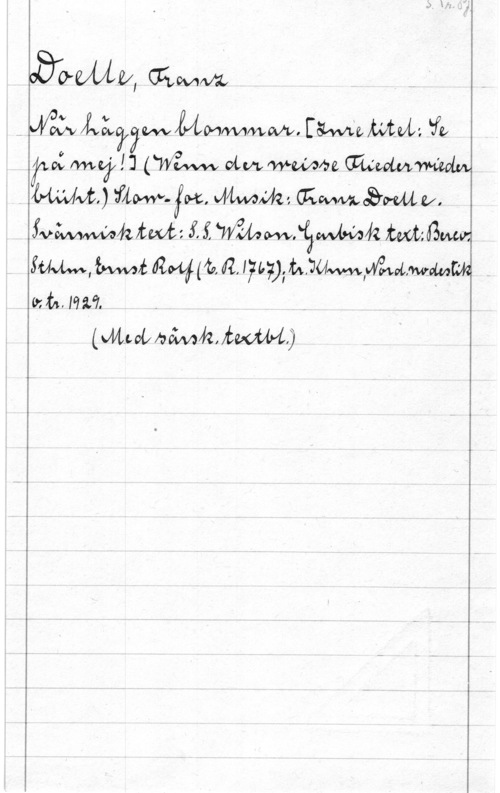 Doelle, Franz
När häggen blommar. [Inre titel: Se
på mej!] (Wenn der weisse Flieder wieder
blüht.) Slow-fox. Musik: Franz Doelle.
Svärmisk text: S.S. Wilson. Garbisk text: Berco.
Sthlm, Ernst Rolf (E.R. 1767); tr. Khvn, Nord. nodestik
o. tr. 1929.
(Med särsk. textbl.)